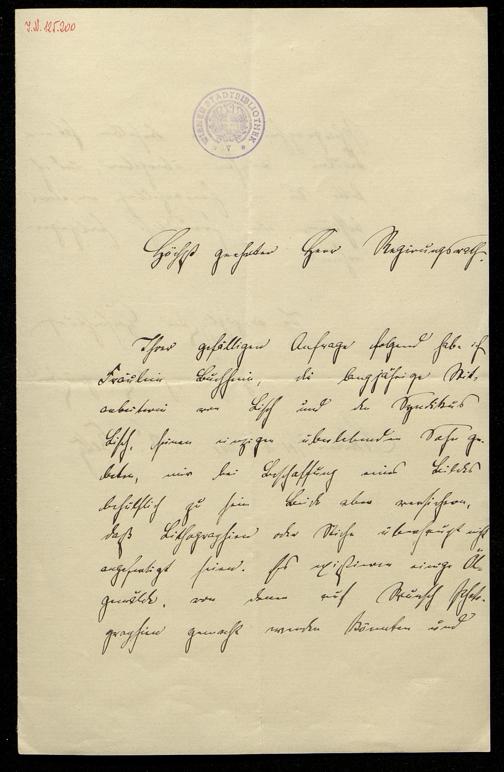 J.N. 125.200
WIENER STADTBIBLIOTHEK
Höchst geehrter Herr Regierungsrath.
Ihrer gefälligen Anfrage folgend habe ich
Fräulein Buchheim, die langjährige Mit-
arbeiterin von Lisch und den Syndikus
Lisch, seinen einzigen überlebenden Sohn ge-
beten, mir bei Beschaffung eines Bildes
behülflich zu sein. Beide aber versichern,
daß Lithographien oder Stiche überhaupt nicht
angefertigt seien. Es existieren einige Öl-
gemälde, von denen auf Wunsch Photo-
graphien gemacht werden könnten und